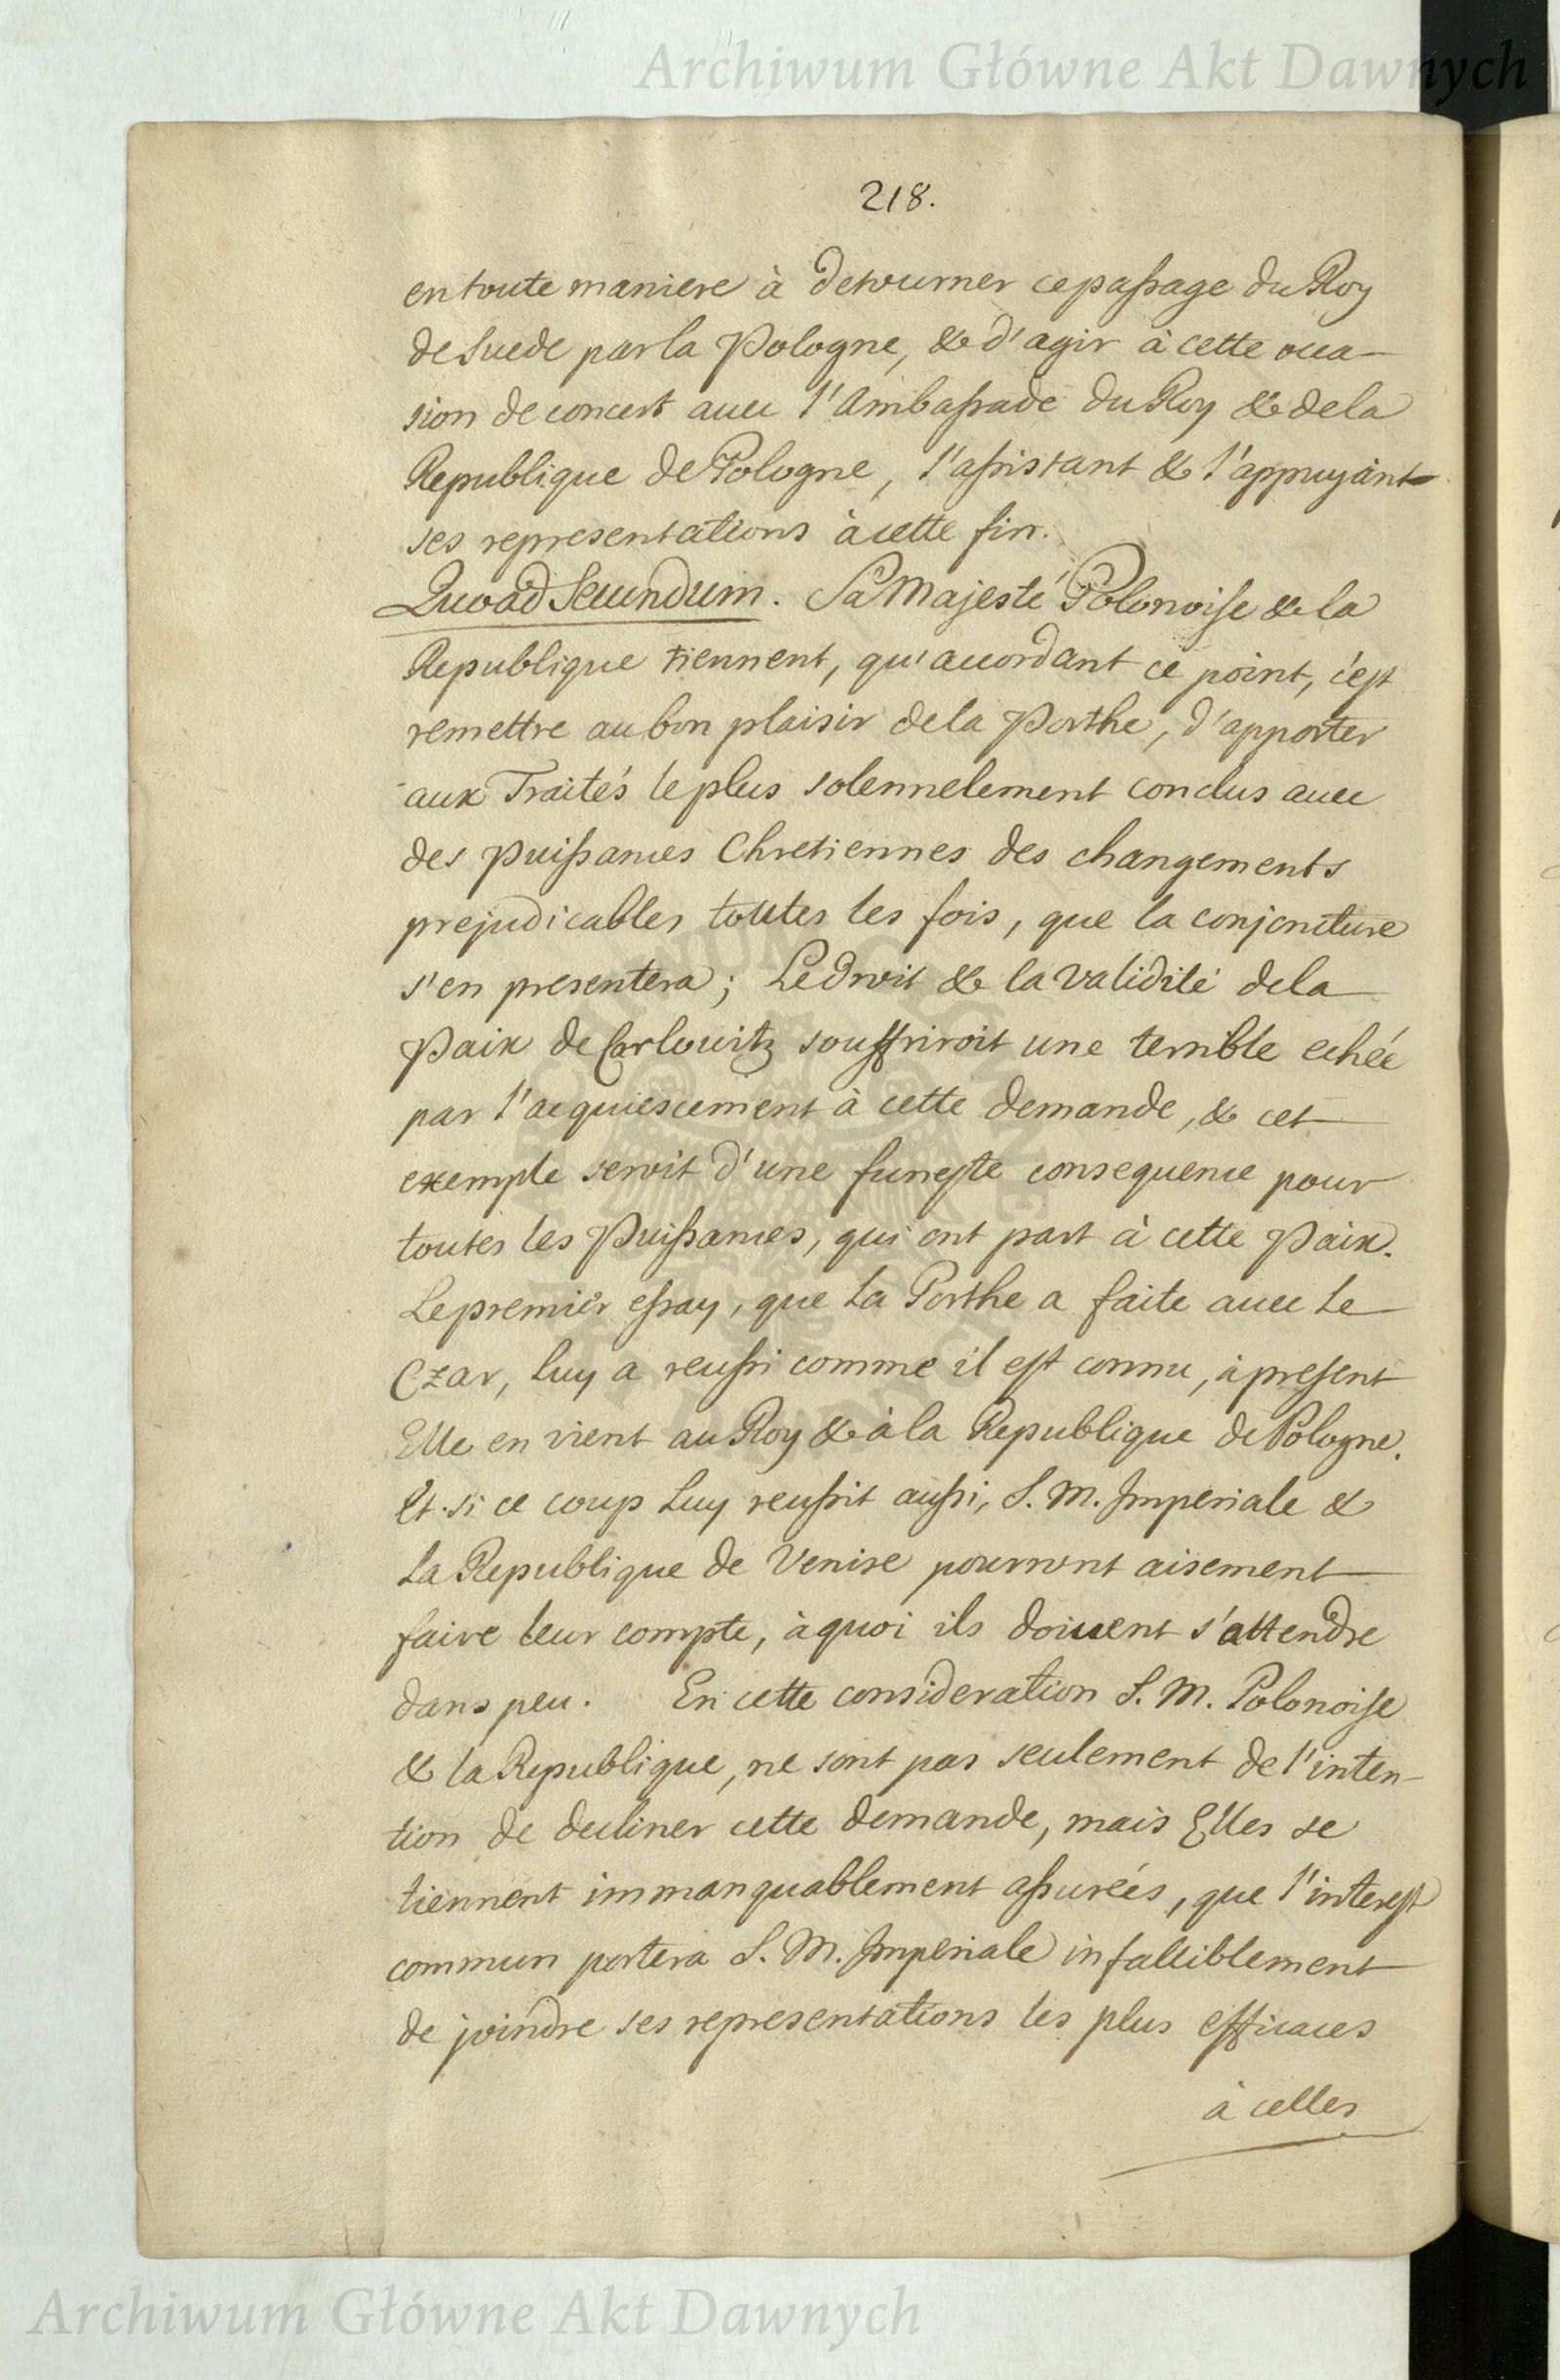 Archiwum Główne Akt Dawnych
218.
en toute maniere à detourner ce passage du Roy
de Suede par la Pologne, & d'agir à cette occa-
sion de concert avec l'Ambassade du Roy & de la
Republique de Pologne, l'assistant & l'appuyant
ses representations à cette fin.
Quoad Secundum. Sa Majesté Polonoise & la
Republique tiennent, qu'accordant ce point, c'est
remettre au bon plaisir de la Porthe, d'apporter
aux Traités le plus solennelement conclus avec
des Puissances Chretiennes des changements
prejudicables toutes les fois, que la conjoncture
s'en presentera; Le droit & la validité de la
Paix de Carlowitz souffriroit une terrible echée
par l'acquiescement à cette demande, & cet
exemple seroit d'une funeste consequence pour
toutes les Puissances, qui ont part à cette Paix.
Le premier essay, que la Porthe a faite avec le
Czar, luy a reussi comme il est connu, à present
Elle en vient au Roy & à la Republique de Pologne.
Et si ce coup Luy reussit aussi, S. M. Imperiale &
la Republique de Venise pourront aisement
faire leur compte, à quoi ils doivent s'attendre
dans peu. En cette consideration S. M. Polonoise
& la Republique, ne sont pas seulement de l'inten-
tion de decliner cette demande, mais Elles se
tiennent immanquablement assurées, que l'interest
commun portera S. M. Imperiale infalliblement
de joindre ses representations les plus efficaces
à celles
Archiwum Główne Akt Dawnych